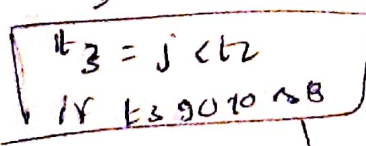 t3 = j < t2
if t3 goto B